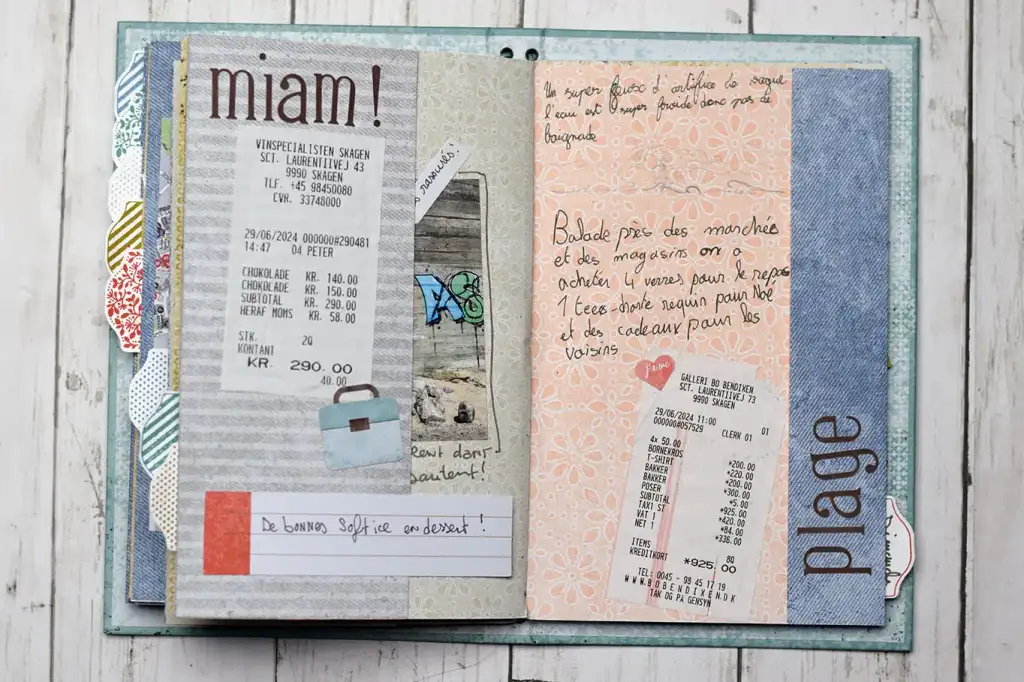 miam!
VINSPECIALISTEN SKAGEN
SCT. LAURENTIIVEJ 43
9990 SKAGEN
TLF. +45 98450080
CVR. 33748000
29/06/2024 000000#290481
14:47 04 PETER
CHOKOLADE KR. 140.00
CHOKOLADE KR. 150.00
SUBTOTAL KR. 290.00
HERAF MOMS KR. 58.00
STK. 2Q
KONTANT
KR. 290.00
40.00
rassurés!
AS
dans
sautent!
De bonnes Softice en dessert !
Un super feux d'artifice de
l'eau est super froide donc pas de
baignade
Balade près des marchés
et des magasins on a
acheter 4 verres pour le repas
1 tees-shirte requin pour Noé
et des cadeaux pour les
voisins
J'aime
GALLERI BO BENDIKEN
SCT. LAURENTIIVEJ 73
9990 SKAGEN
29/06/2024 11:00 01
000000#057529 CLERK 01
4x 50.00
BORNEKROS *200.00
T-SHIRT *220.00
BAKKER *200.00
BAKKER *300.00
POSER *5.00
SUBTOTAL *925.00
TAX1 ST *420.00
VAT 1 *84.00
NET 1 *336.00
ITEMS 8Q
KREDITKORT *925.00
TEL: 0045 - 98 45 17 19
WWW.BOBENDIXEN.DK
TAK OG PÅ GENSYN
plage